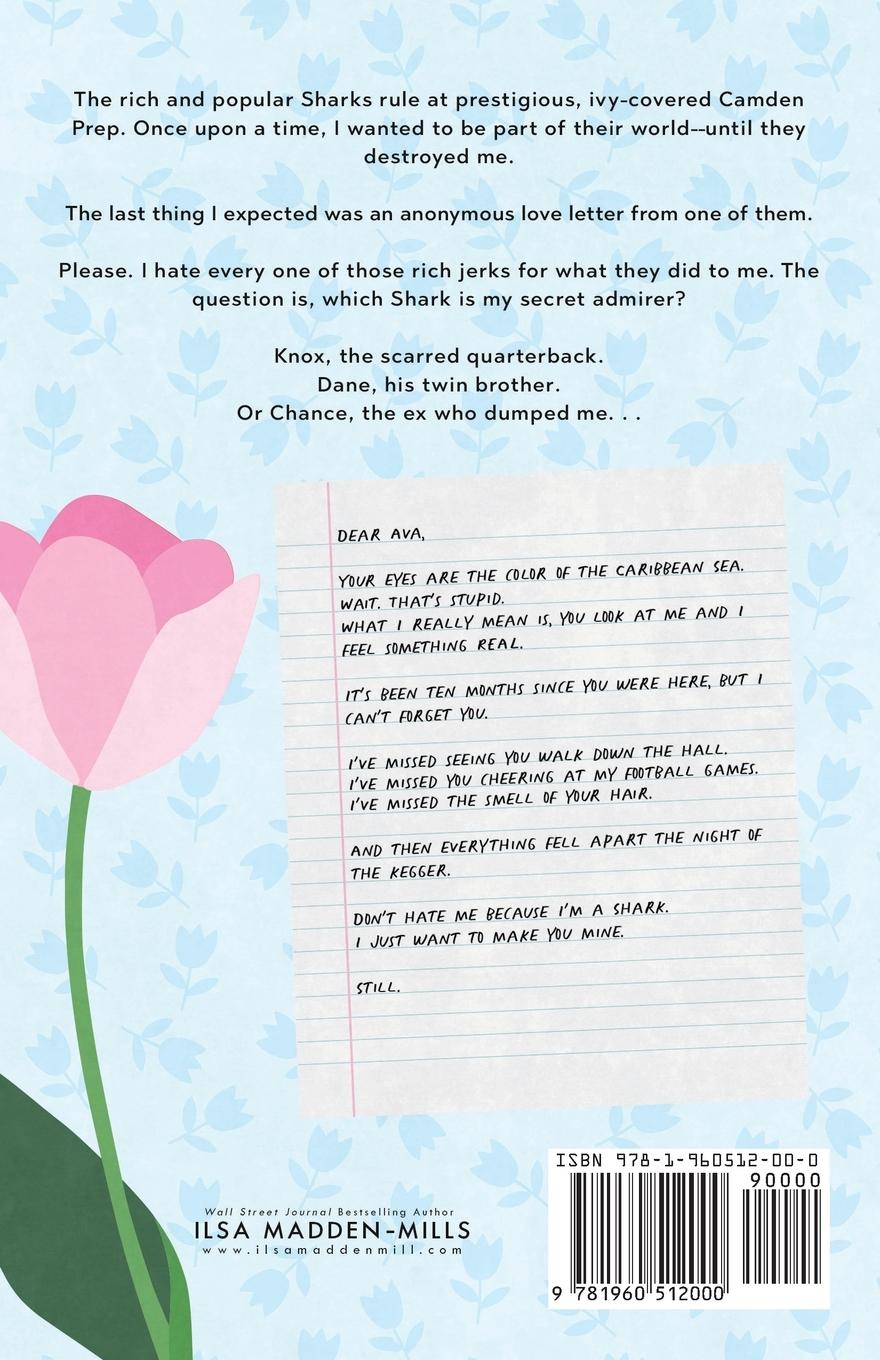 The rich and popular Sharks rule at prestigious, ivy-covered Camden
Prep. Once upon a time, I wanted to be part of their world--until they
destroyed me.
The last thing I expected was an anonymous love letter from one of them.
Please. I hate every one of those rich jerks for what they did to me. The
question is, which Shark is my secret admirer?
Knox, the scarred quarterback.
Dane, his twin brother.
Or Chance, the ex who dumped me. . .
DEAR AVA,
YOUR EYES ARE THE COLOR OF THE CARIBBEAN SEA.
WAIT. THAT'S STUPID.
WHAT I REALLY MEAN IS, YOU LOOK AT ME AND I
FEEL SOMETHING REAL.
IT'S BEEN TEN MONTHS SINCE YOU WERE HERE, BUT I
CAN'T FORGET YOU.
I'VE MISSED SEEING YOU WALK DOWN THE HALL.
I'VE MISSED YOU CHEERING AT MY FOOTBALL GAMES.
I'VE MISSED THE SMELL OF YOUR HAIR.
AND THEN EVERYTHING FELL APART THE NIGHT OF
THE KEGGER.
DON'T HATE ME BECAUSE I'M A SHARK.
I JUST WANT TO MAKE YOU MINE.
STILL.
Wall Street Journal Bestselling Author
ILSA MADDEN-MILLS
www.ilsamaddenmill.com
ISBN 978-1-960512-00-0
90000
9 781960 512000